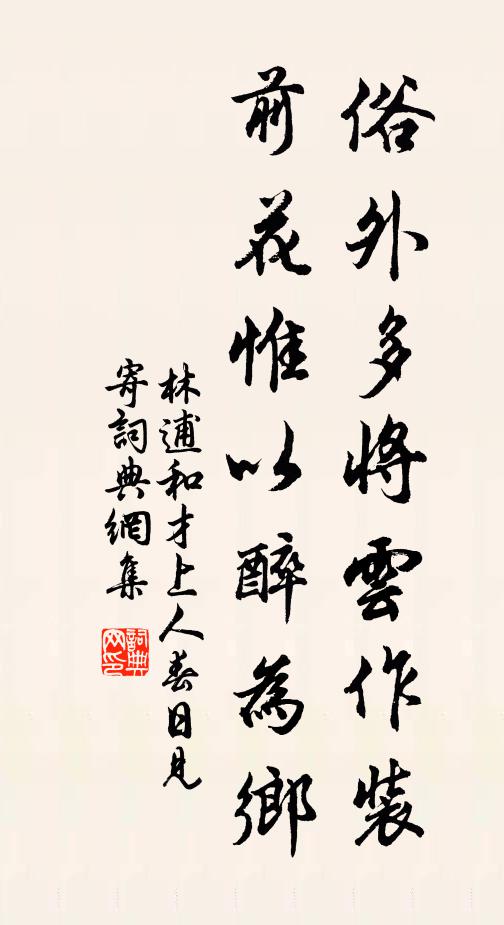 俗外多將雲作裝
前花惟以醉為鄉
林逋和才上人春日見
寄詞典網集
詞典网印